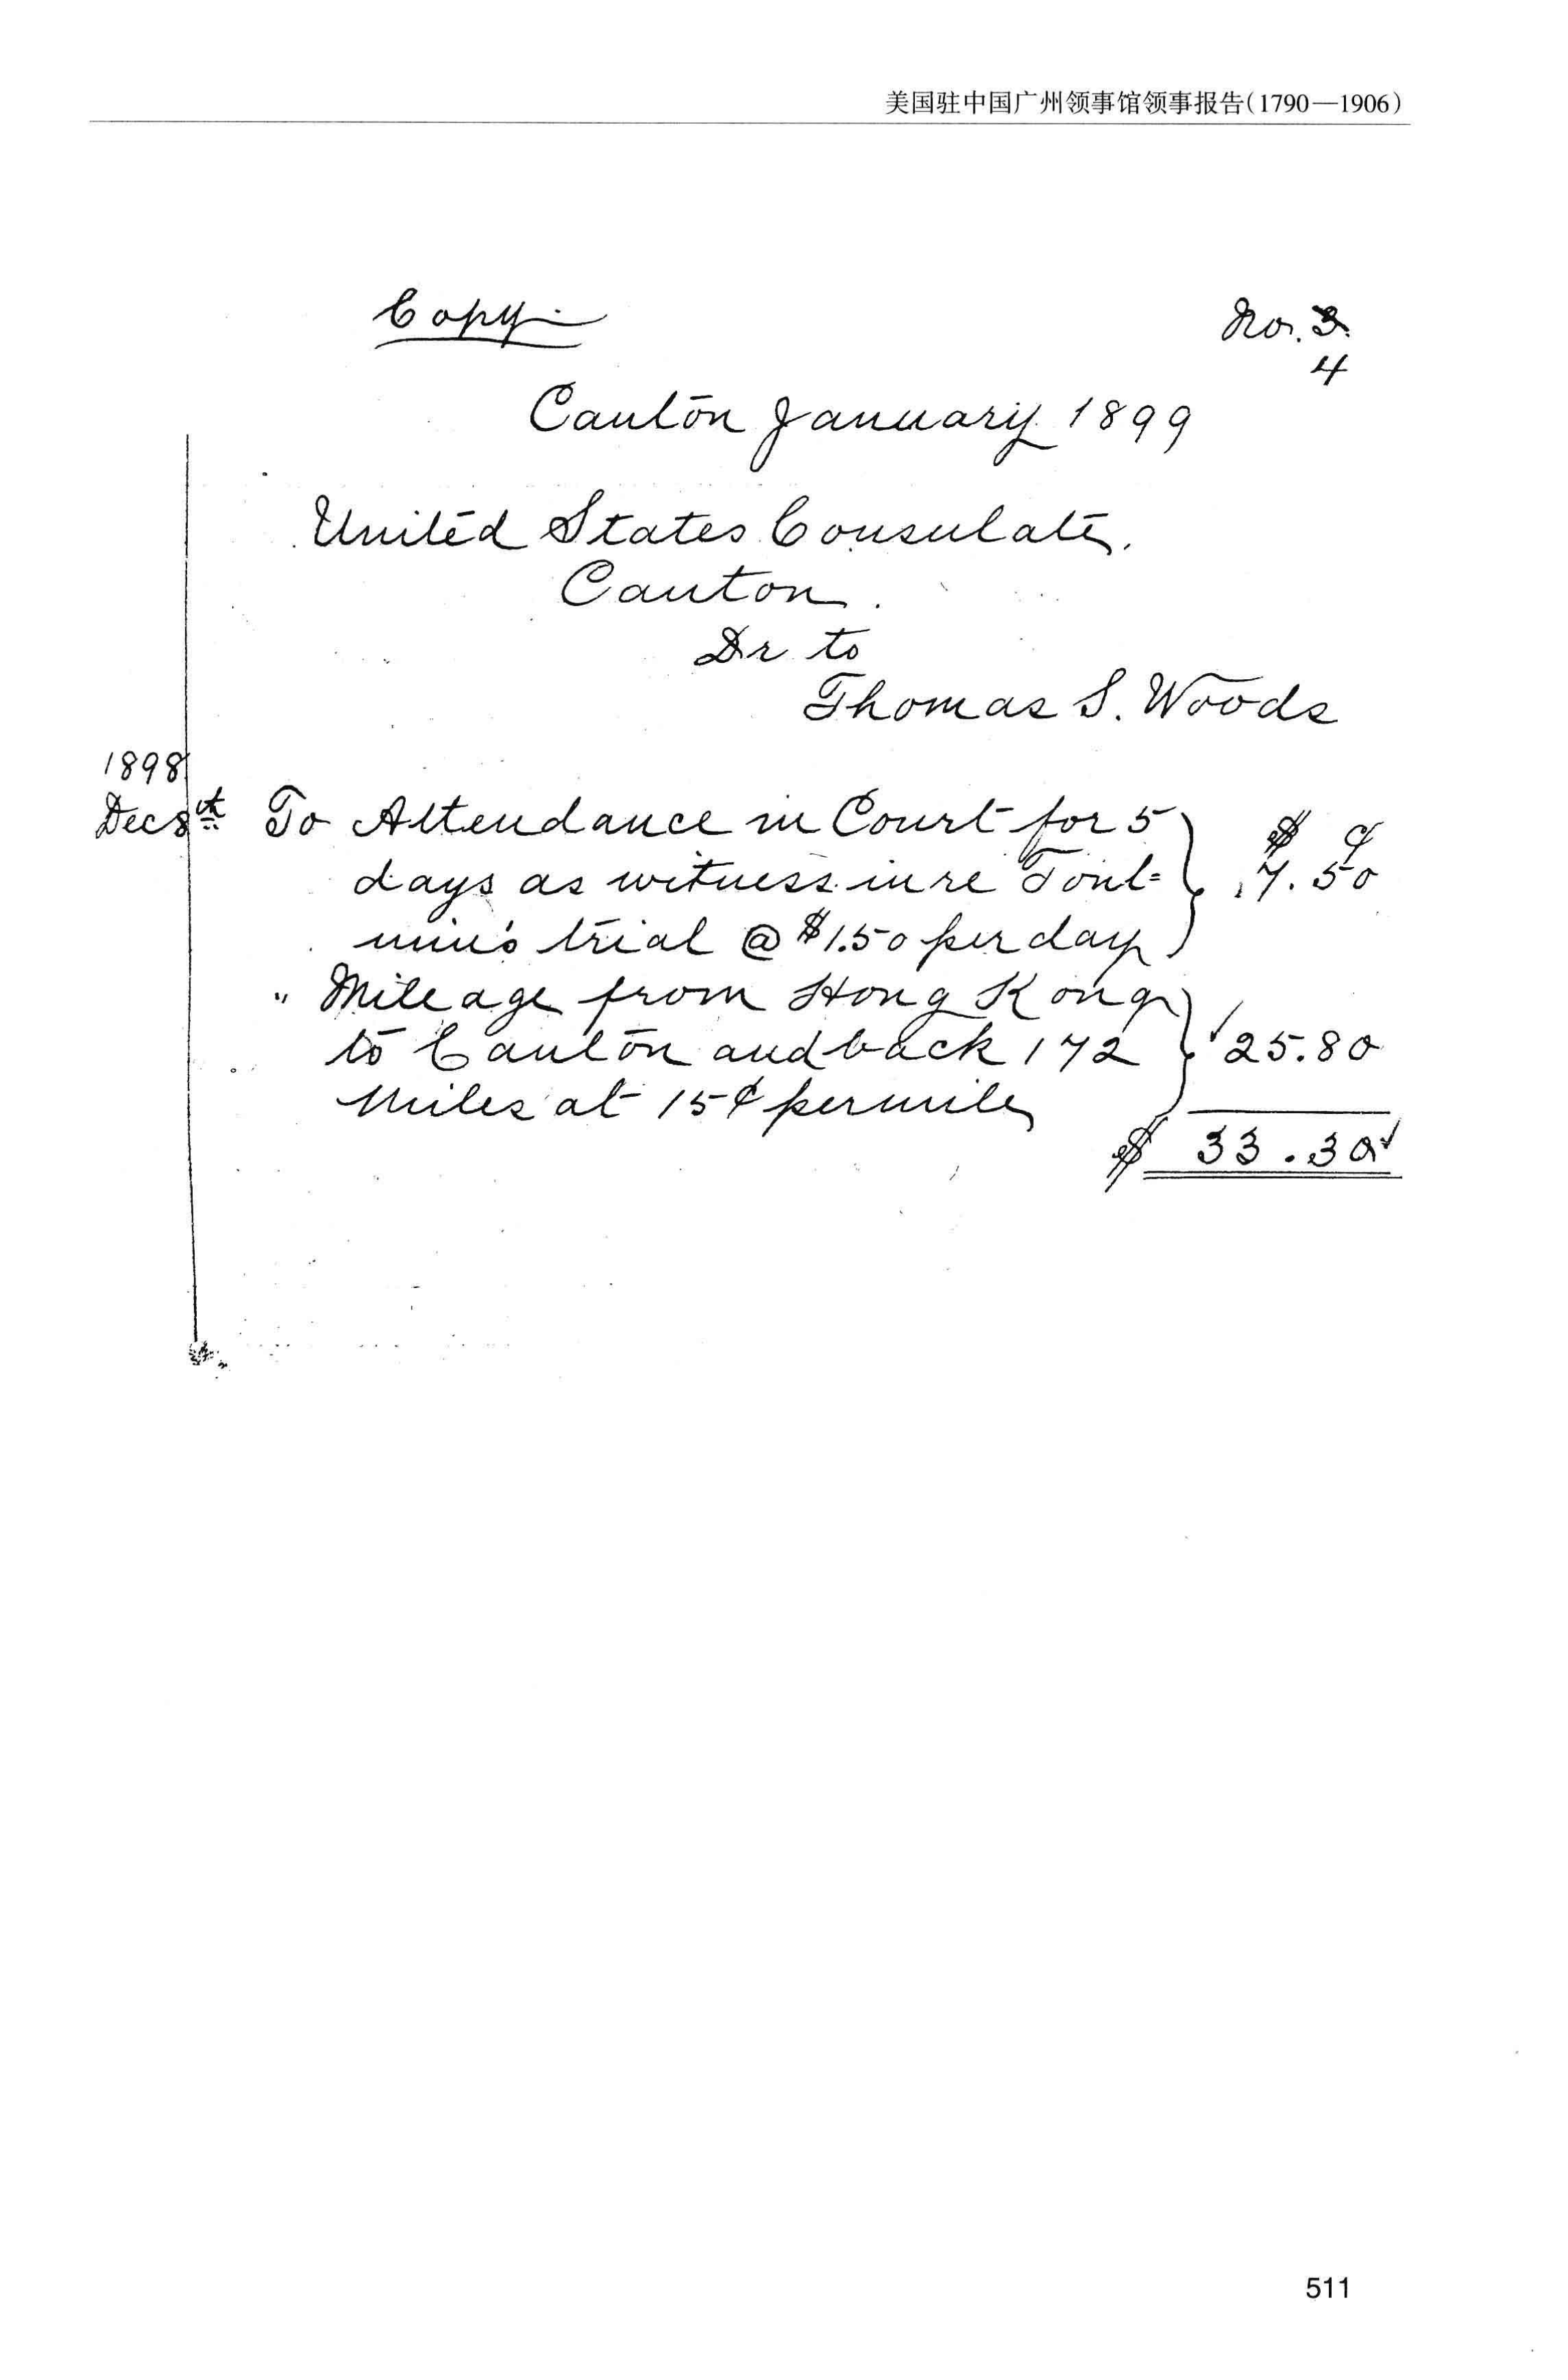 美国驻中国广州领事馆领事报告(1790—1906)
Copy
No. 3.
4
Canton January 1899
United States Consulate,
Canton.
Dr to
Thomas S. Woods
1898
Dec 8th To Attendance in Court for 5 $ ¢
days as witness in re Toul= 7.50
min's trial @ $1.50 per day
" Mileage from Hong Kong
to Canton and back 172 25.80
miles at 15¢ per mile
$ 33.30
511